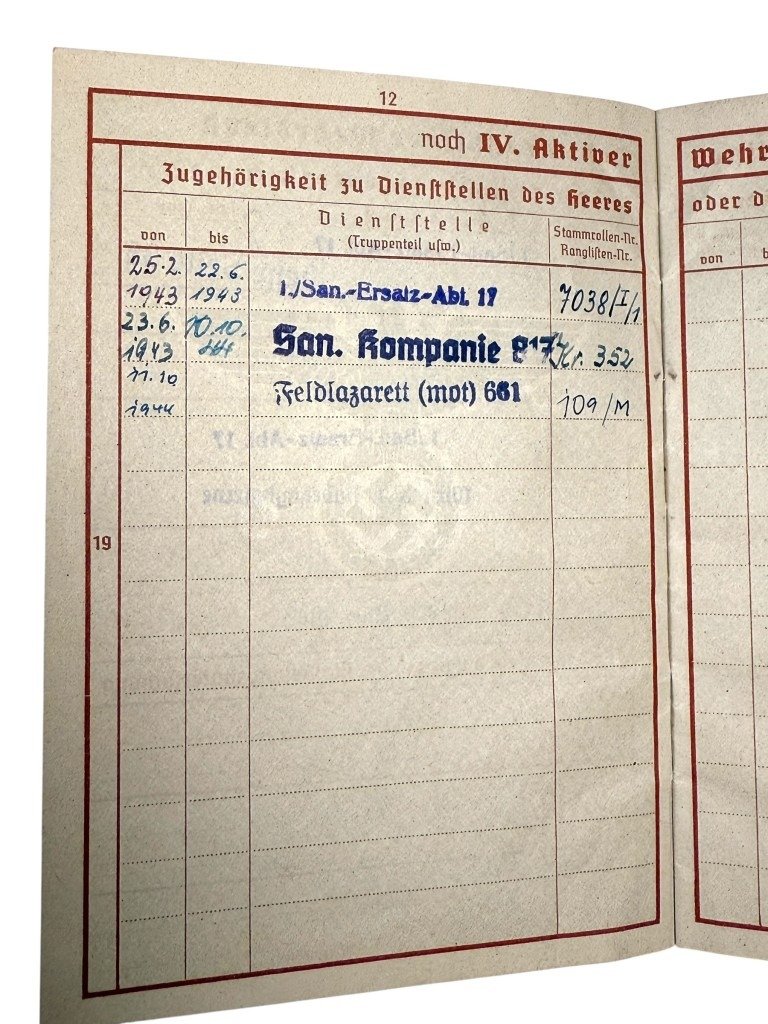 12
noch IV. Aktiver
Zugehörigkeit zu Dienststellen des Heeres
von
bis
Dienststelle
(Truppenteil usw.)
Stammrollen-Nr.
Ranglisten-Nr.
25.2.
1943
22.6.
1943
1./San.-Ersatz-Abt. 17
7038/I/1
23.6.
1943
10.10.
44
San. Kompanie 817
Nr. 352
11.10
1944
Feldlazarett (mot) 661
109/M
19
Wehr
oder d
von
b